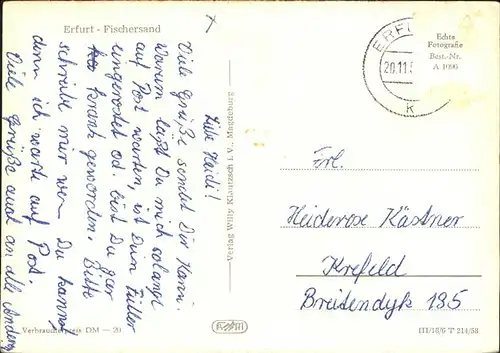 Erfurt - Fischersand
Liebe Heidi!
Viele Grüße sendet Dir Karin.
Warum läßt Du mich solange
auf Post warten, ist Dein Füller
eingerostet od. bist Du gar
krank geworden. Bitte
schreibe mir wenn Du kannst
denn ich warte auf Post.
Viele Grüße auch an alle Anderen
Verbraucherpreis DM —20
Verlag Willy Klautzsch i. V., Magdeburg
ERFU
20.11.5
K
Echte
Fotografie
Best.-Nr.
A 1096
Frl.
Heiderose Kästner
Krefeld
Breitendyk 135
III/18/6 T 214/58